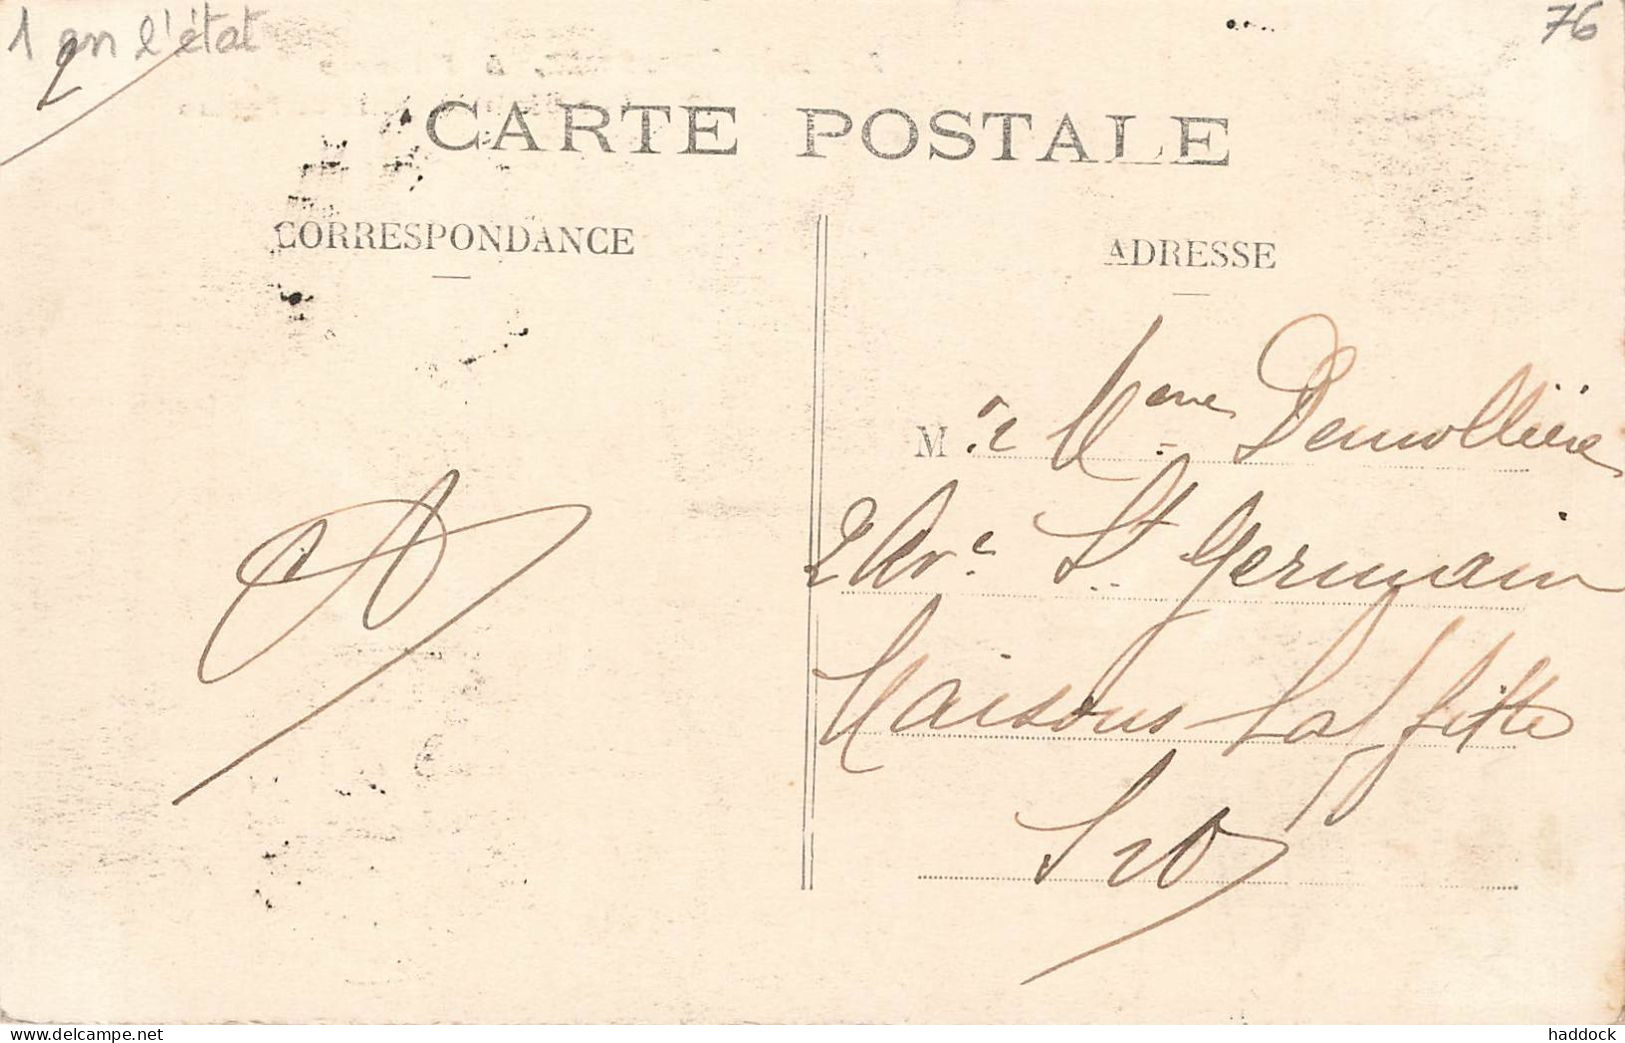 1 en l'état
76
CARTE POSTALE
CORRESPONDANCE
ADRESSE
M. et Mme Demollière
2 Ave St Germain
Maisons Laffitte
S & O
delcampe.net
haddock